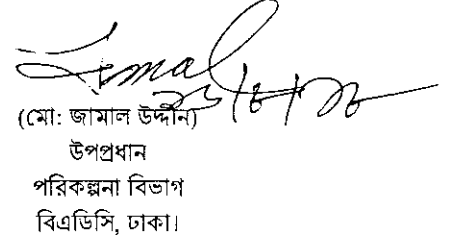 (মো: জামাল উদ্দীন)
উপপ্রধান
পরিকল্পনা বিভাগ
বিএডিসি, ঢাকা।